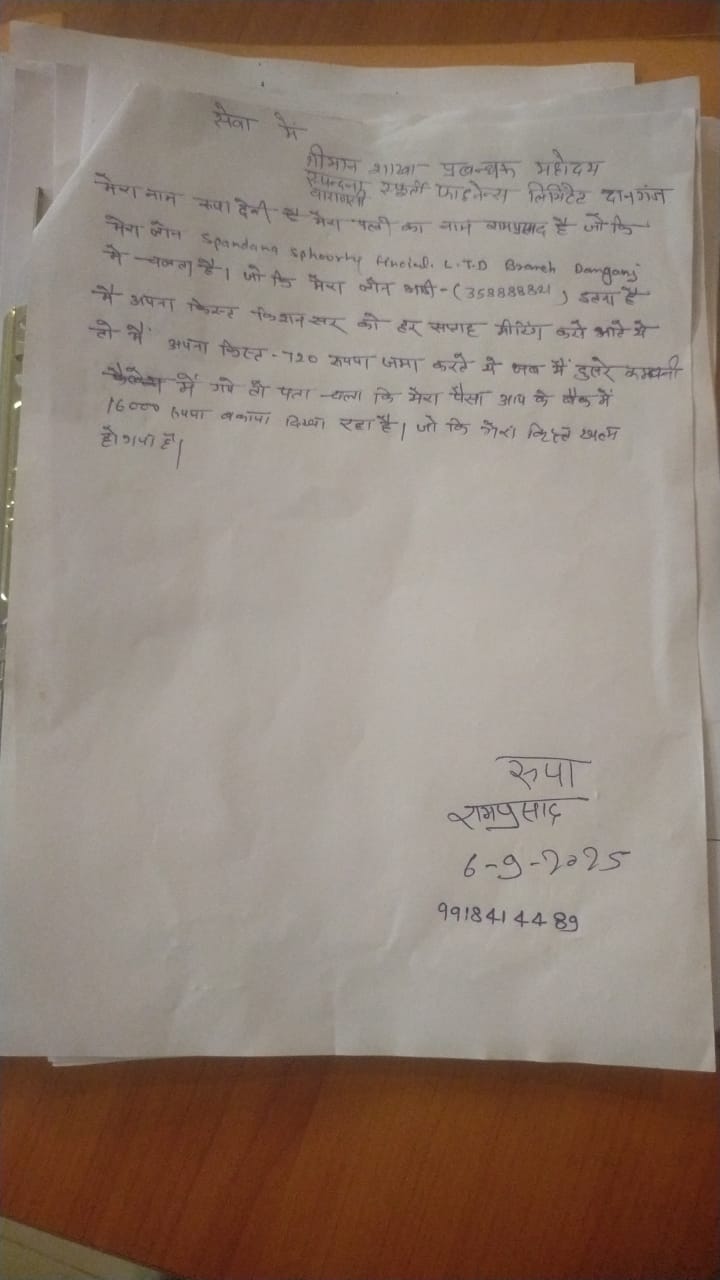 सेवा में
श्रीमान शाखा प्रबन्धक महोदय
स्पन्दना स्फूर्ती फाइनेन्स लिमिटेट दानगंज
वाराणसी
मेरा नाम रूपा देवी है मेरा पती का नाम रामप्रसाद है जो कि
मेरा लोन Spandana Sphoorty L.T.D Branch Danganj
मे चलता है। जो कि मेरा लोन आडी-(358888821) इतना है
मै अपना किस्ट किशन सर को हर सप्ताह मीटिंग करने आते थे
तो मैं अपना किस्ट-720 रूपया जमा करते थे जब मैं दुसरे कम्पनी
में गये तो पता चला कि मेरा पैसा आप के बैंक में
16000 रूपया बकाया दिखा रहा है। जो कि मेरा किस्त खत्म
हो गया है।
रूपा
रामप्रसाद
6-9-2025
9918414489